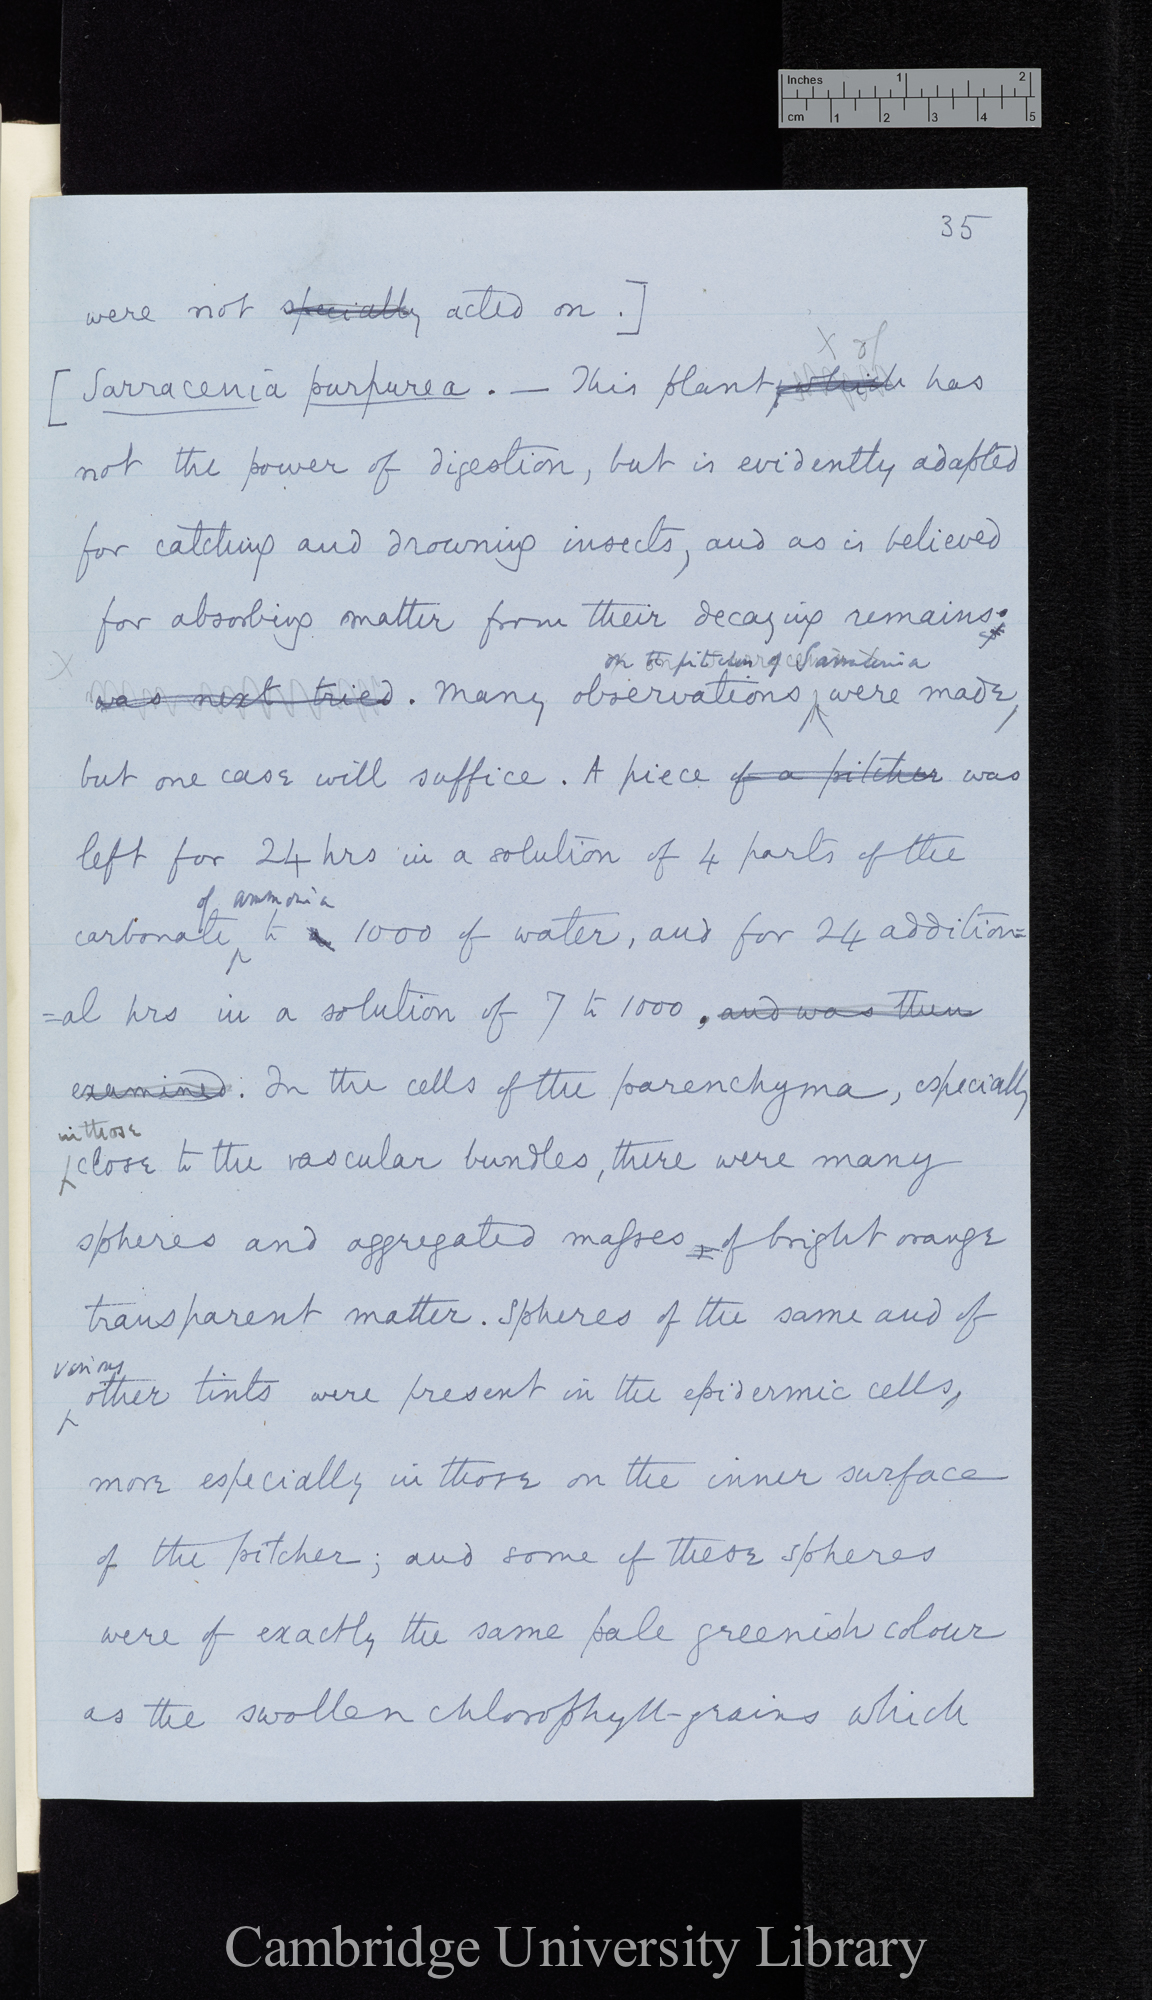 Inches 1 2
cm 1 2 3 4 5
35
were not specially acted on .]
x of
[ Sarracenia purpurea . — This plant, which has
not the power of digestion, but is evidently adapted
for catching and drowning insects, and as is believed
for absorbing matter from their decaying remains.
x on the pitchers of Sarracenia
was next tried . Many observations were made,
but one case will suffice . A piece of a pitcher was
left for 24 hrs in a solution of 4 parts of the
of ammonia
carbonate to 1000 of water, and for 24 addition=
=al hrs in a solution of 7 to 1000 . and was then
examined . In the cells of the parenchyma, especially
in those
close to the vascular bundles, there were many
spheres and aggregated masses of bright orange
transparent matter. Spheres of the same and of
various
other tints were present in the epidermic cells,
more especially in those on the inner surface
of the pitcher ; and some of these spheres
were of exactly the same pale greenish colour
as the swollen chlorophyll-grains which
Cambridge University Library